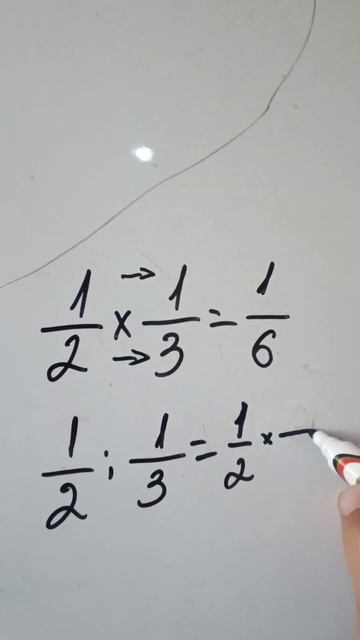 1/2 x → → 1/3 = 1/6
1/2 : 1/3 = 1/2 x —